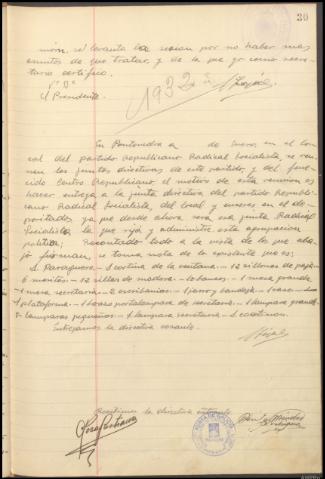 30
nión, se levanta la sesión por no haber más
asuntos de que tratar, y de lo que yo como secre-
tario certifico.
Vº Bº
El Presidente
1932
En Pontevedra a de Enero, en el lo-
cal del partido Republicano Radical Socialista, se reu-
nen las juntas directivas de este partido, y del fene-
cido Centro Republicano el motivo de esta reunión es
hacer entrega a la junta directiva del partido Republi-
cano Radical Socialista, del local y enseres en el de-
positados, ya que desde ahora será esa junta Radical
Socialista la que rija y administre esta agrupación
política; Recontado todo a la vista de los que aba-
jo firman, se toma nota de lo existente que es:
1 Paragüero - 1 cortina de la ventana - 12 sillones de paja
6 - 12 sillas de madera - 2 bancos - 1 mesa grande
1 mesa secretaria - 2 escribanías - 1 jarro y bandeja - 1 vaso
1 plataforma - 1 brazo portalámpara de secretaria - 1 lámpara grande
lámparas pequeñas - 1 lámpara secretaria - 1
Entregamos la directiva cesante
Recibimos la directiva entrante